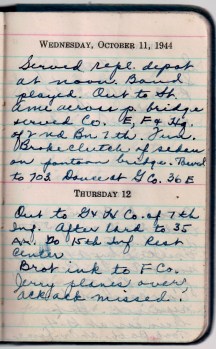 WEDNESDAY, OCTOBER 11, 1944
Served repl. depot
at noon. Band
played. Out to
across p. bridge
served Co. E, F & Hq.
of 2nd Bn 7th. Jim
Broke clutch of sedan
on pontoon bridge. Towed
to 703. Dance at G Co. 36 E
THURSDAY 12
Out to G & H Co. of 7th
Inf. After lard to 35
Do 15th Inf Rest
Center
Brot ink to F Co.
Jerry planes over,
ack ack missed.